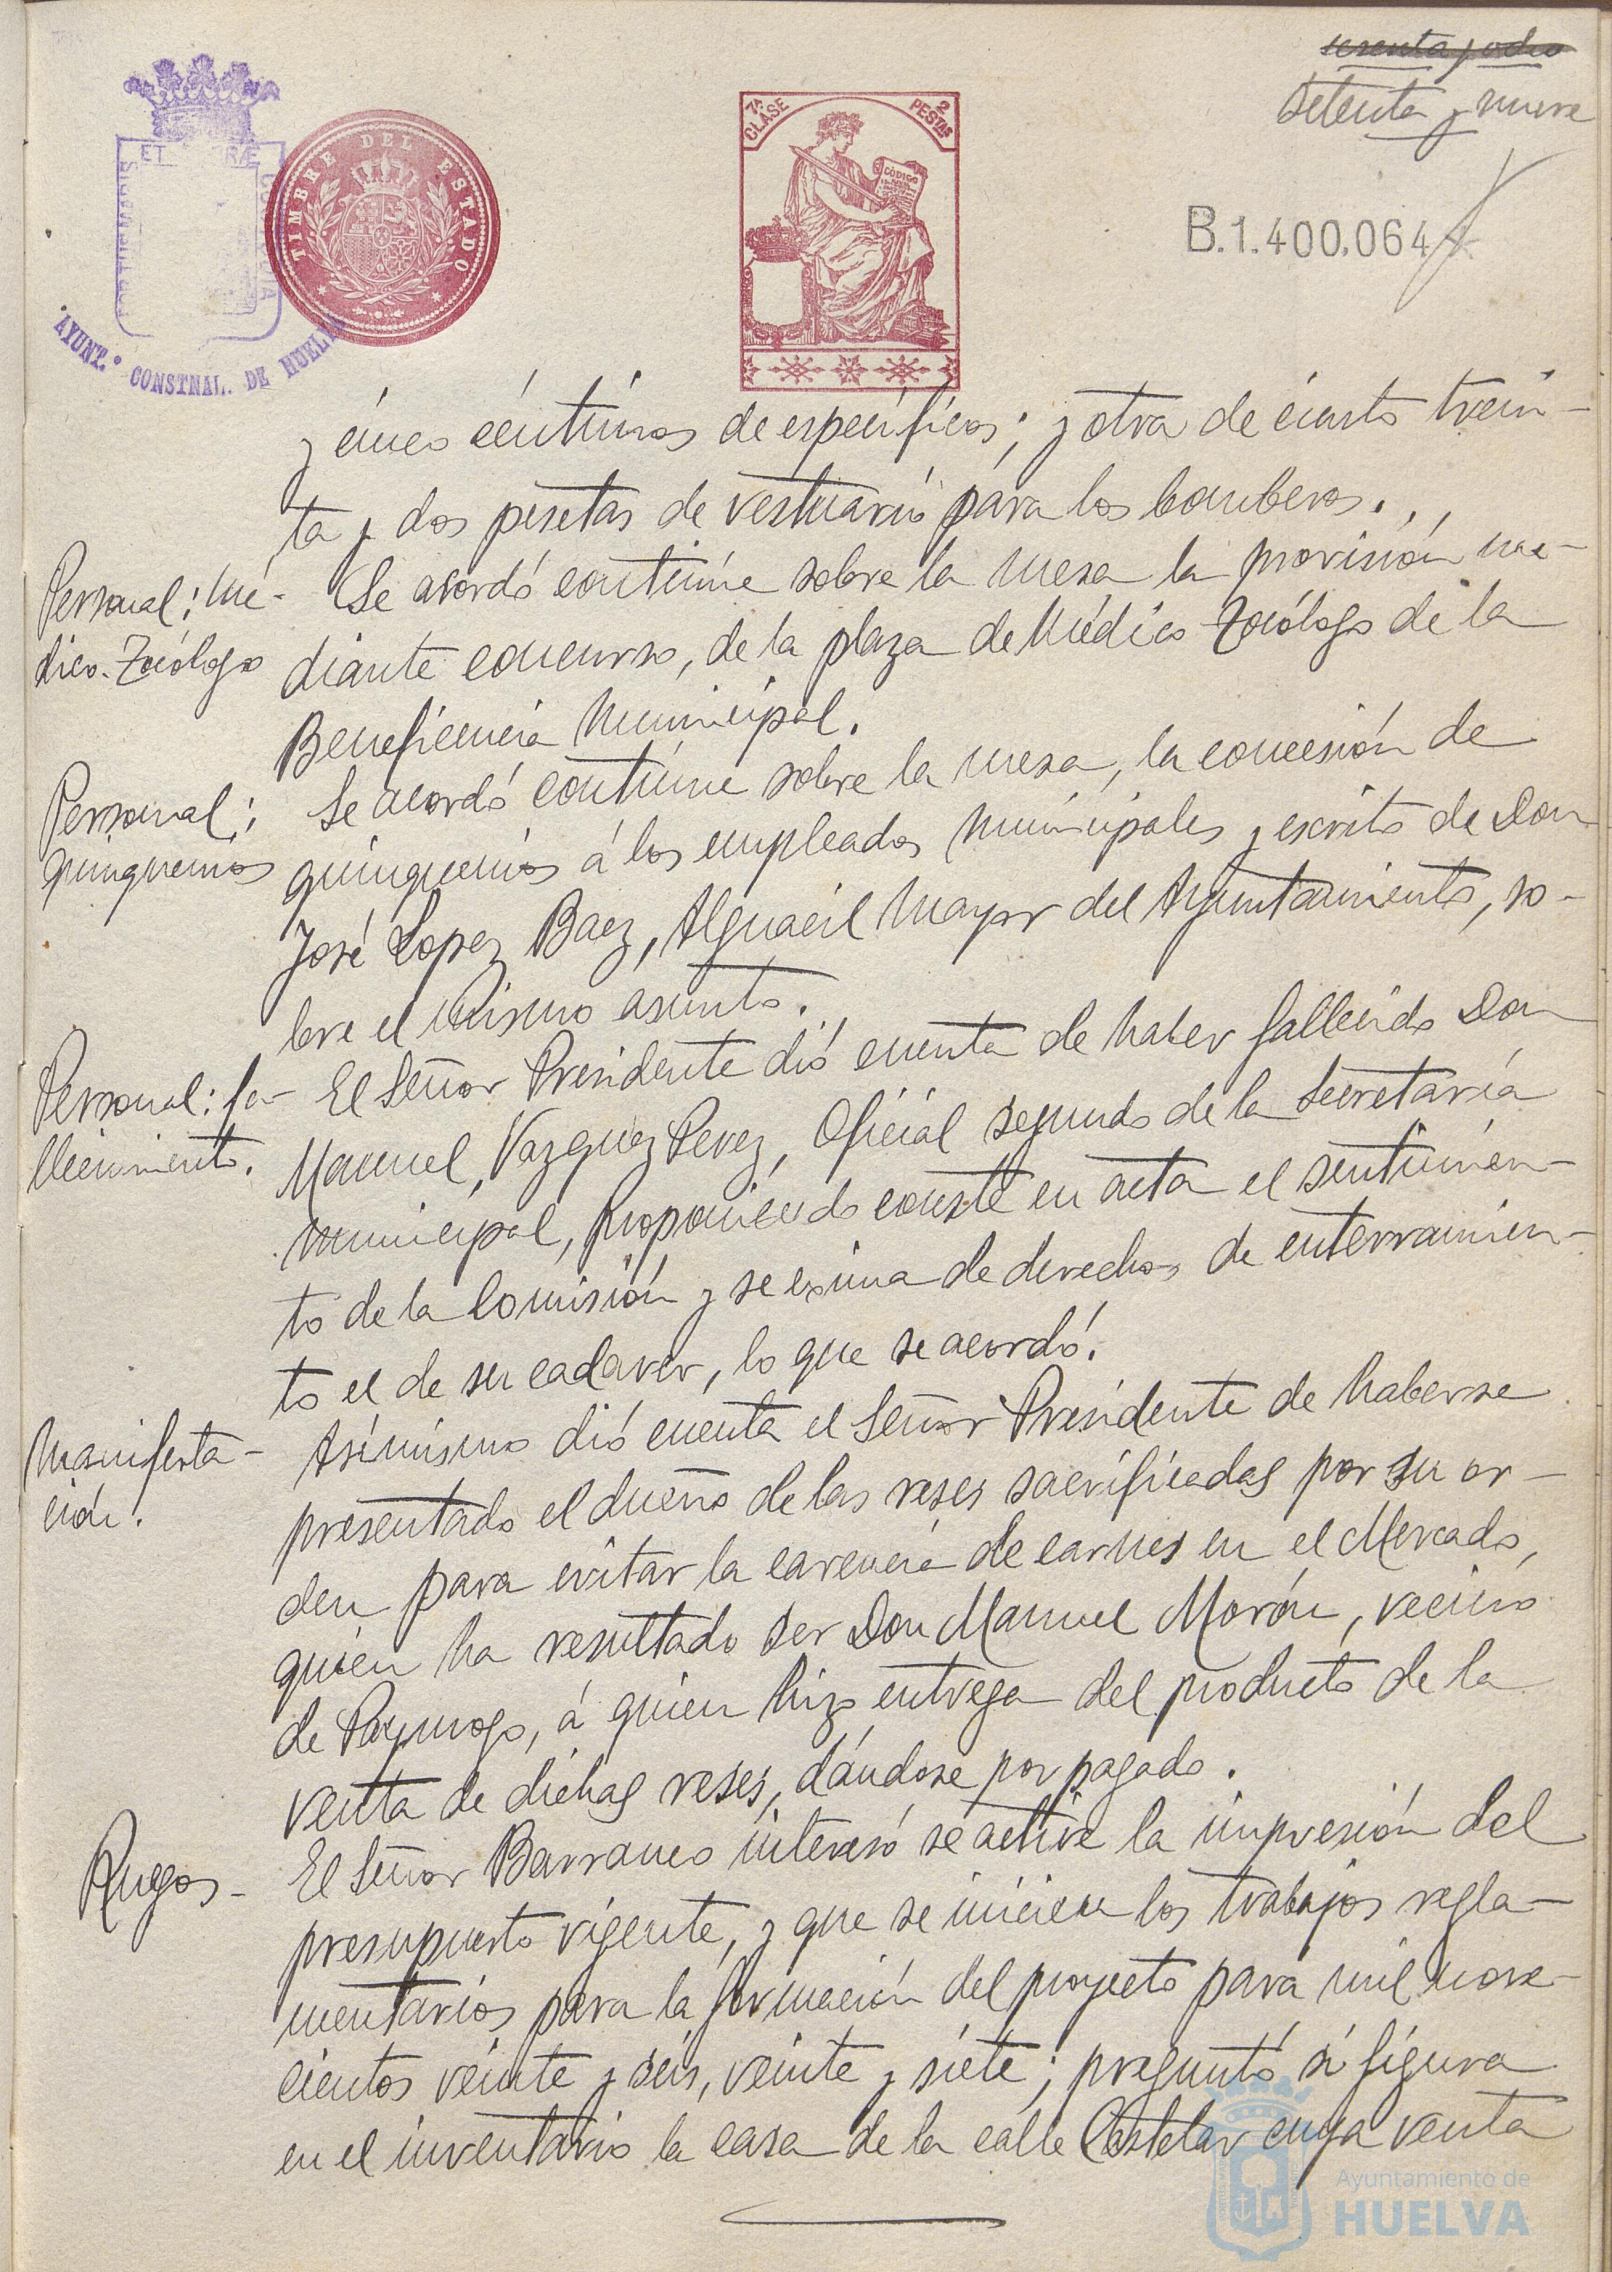 sesenta y ocho
setenta y nueve
7ª CLASE
2 PESTAS
CÓDIGO
TIMBRE DEL ESTADO
B.1.400.064
AYUNT.º CONSTNAL. DE HUELVA
y cinco céntimos de específicos; y otra de ciento trein-
ta y dos pesetas de vestuario para los bomberos.
Personal: Mé-
dico. Tocólogo
Se acordó continúe sobre la mesa la provisión me-
diante concurso, de la plaza de Médico Tocólogo de la
Beneficencia Municipal.
Personal:
quinquenios
Se acordó continúe sobre la mesa, la concesión de
quinquenios á los empleados municipales y escrito de Don
José Lopez Baez, Alguacil Mayor del Ayuntamiento, so-
bre el mismo asunto.
Personal: fa-
llecimiento.
El Señor Presidente dió cuenta de haber fallecido Don
Manuel Vazquez Perez, Oficial segundo de la Secretaría
municipal, proponiendo conste en acta el sentimien-
to de la Comisión y se exima de derechos de enterramien-
to el de su cadaver, lo que se acordó.
Manifesta-
ción.
Asimismo dió cuenta el Señor Presidente de haberse
presentado el dueño de las reses sacrificadas por su or-
den para evitar la carencia de carnes en el Mercado,
quien ha resultado ser Don Manuel Morón, vecino
de Paymogo, á quien hizo entrega del producto de la
venta de dichas reses, dándose por pagado.
Ruegos-
El Señor Barranco interesó se active la impresión del
presupuesto vigente, y que se inicien los trabajos regla-
mentarios para la formación del proyecto para mil nove-
cientos veinte y seis, veinte y siete; preguntó si figura
en el inventario la casa de la calle Castelar cuya venta
Ayuntamiento de
HUELVA